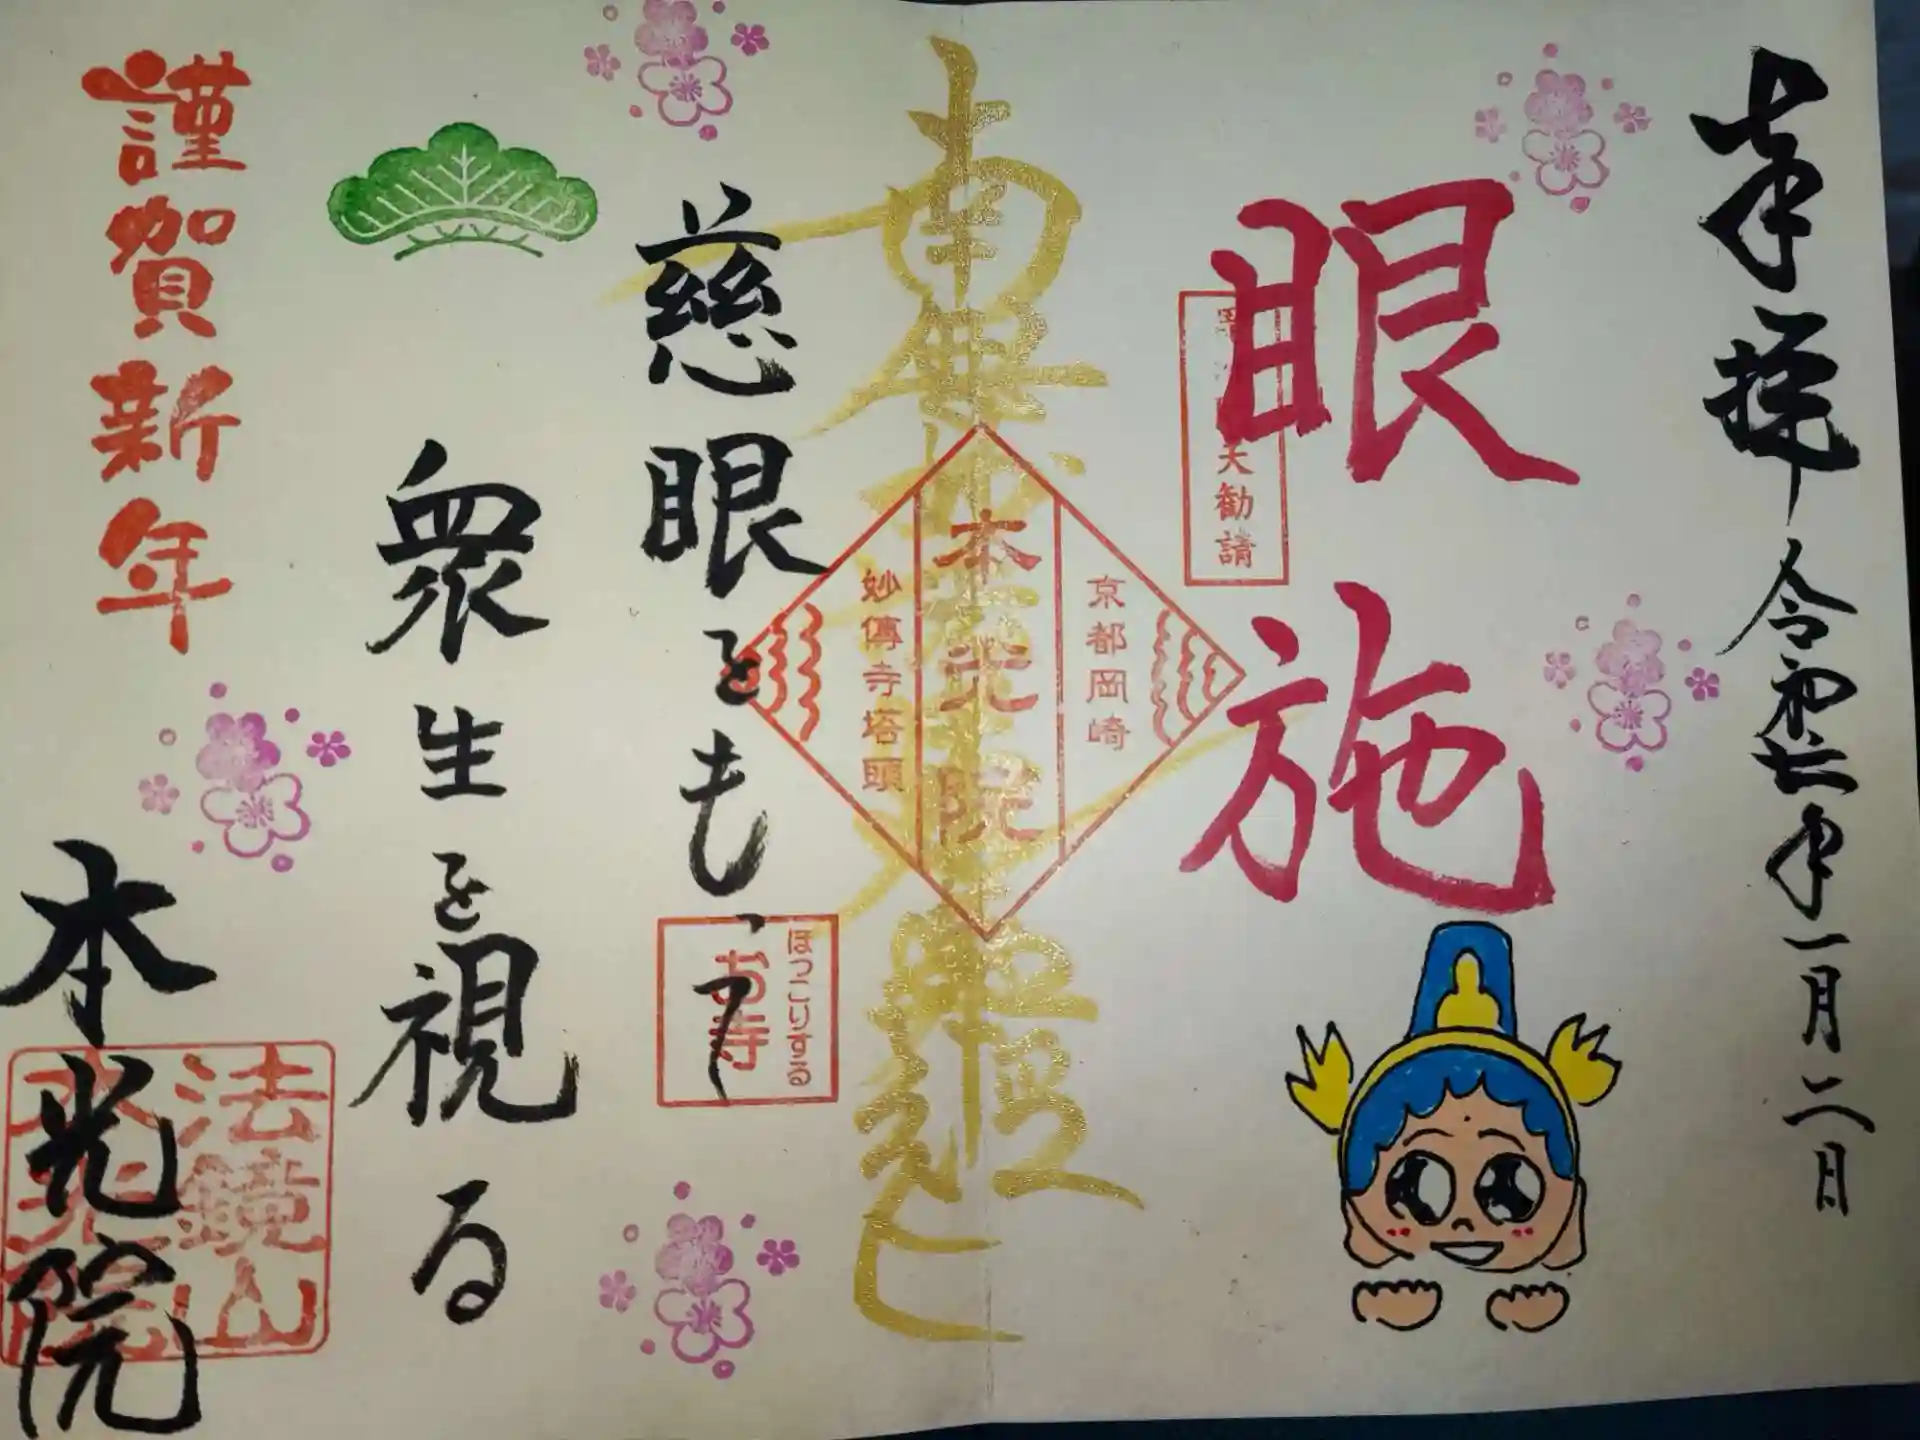 奉拝 令和七年一月二日
眼施
天勧請
京都岡崎
本光院
妙傳寺塔頭
南無妙法蓮華経
慈眼をもって
ほっこりする
お寺
衆生を視る
謹賀新年
本光院
法鏡山
本光院